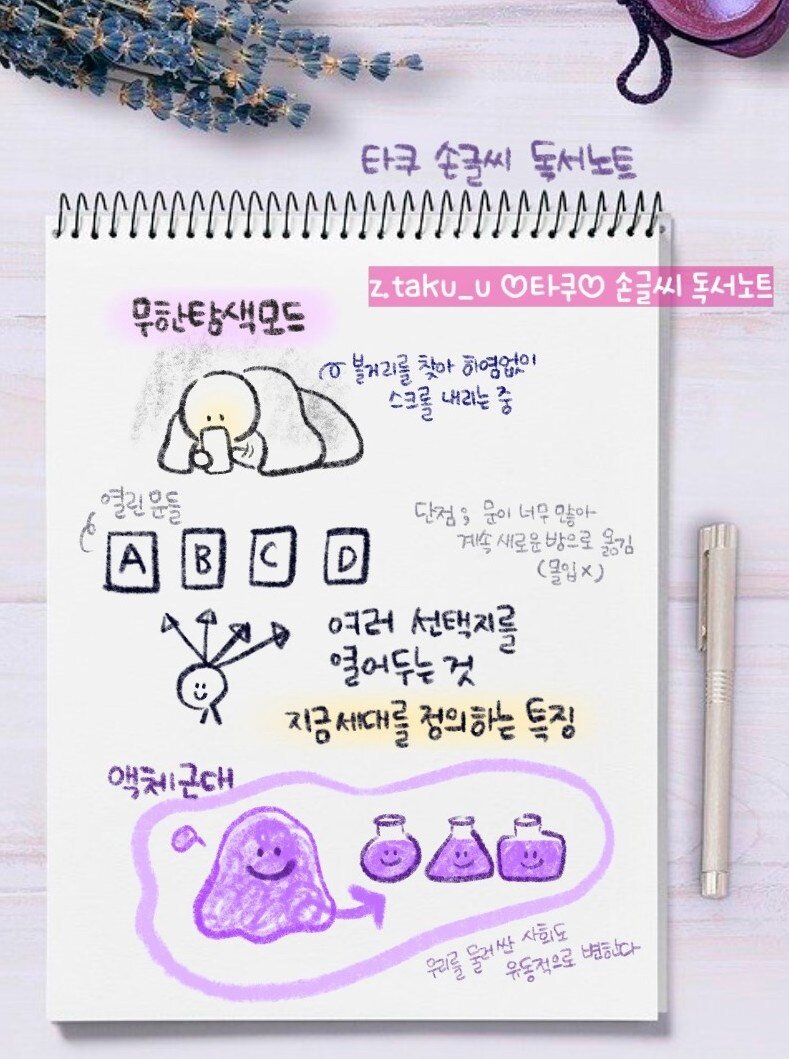 타쿠 손글씨 독서노트
z.taku_u ♡타쿠♡ 손글씨 독서노트
무한탐색모드
볼거리를 찾아 하염없이
스크롤 내리는 중
열린문들
A B C D
단점; 문이 너무 많아
계속 새로운 방으로 옮김
(몰입x)
여러 선택지를
열어두는 것
지금세대를 정의하는 특징
액체근대
우리를 둘러싼 사회도
유동적으로 변한다